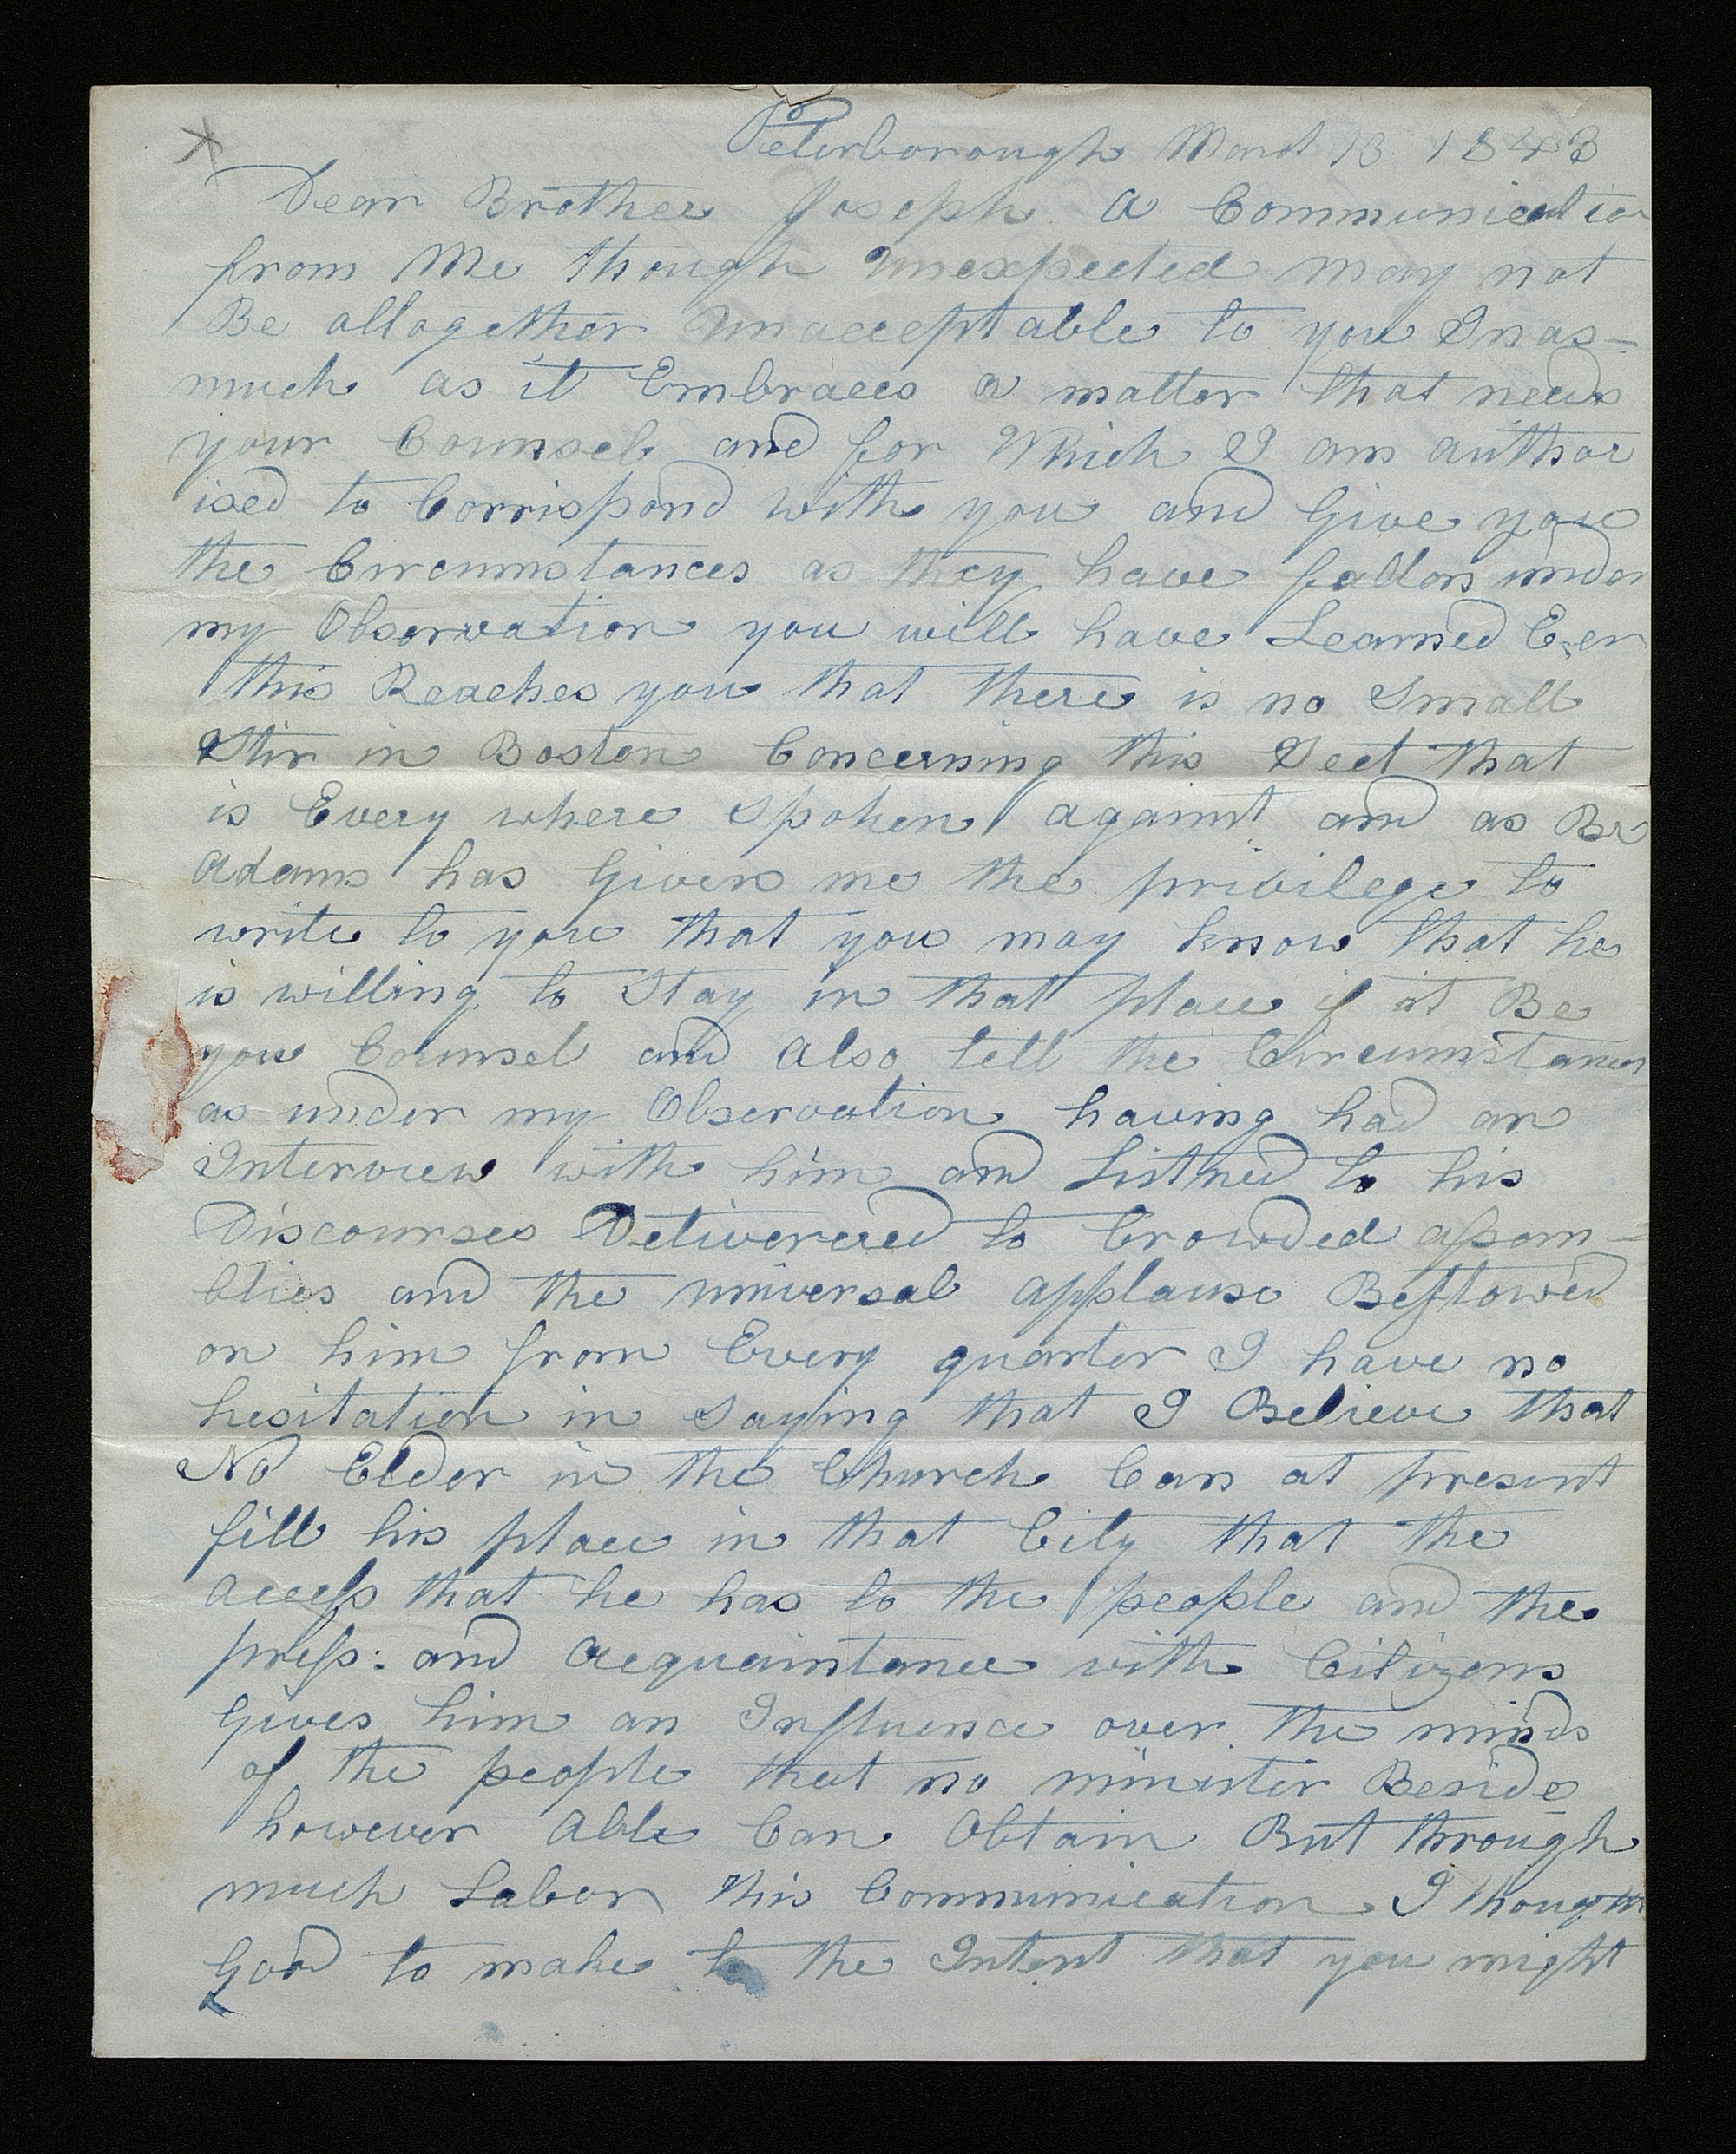 Peterborough March 13 1843
Dear Brother Joseph A Communicatio
from Me though unexpected may not
Be altogether unacceptable to you Inas-
much as it Embraces a matter that needs
your Counsel and for Which I am author
ised to Corrispond with you and Give you
the Circumstances as they have fallen under
my Observation you will have Learned E,er
this Reaches you that there is no Small
Stir in Boston Concerning this Sect that
is Every where spoken against and as Br
Adams has Given me the privilege to
write to you that you may know that he
is willing to Stay in that place if it Be
you Counsel and also tell the Circumstances
as under my Observation having had an
Interview with him and Listned to his
Discourses Delivereed to Crowded assem-
blies and the universal applause Bestowed
on him from Every quarter I have no
hesitation in saying that I Believe that
No Elder in the Church Can at present
fill his place in that City that the
access that he has to the people and the
press: and acquaintance with Citizens
Gives him an Influence over the minds
of the people that no minister Beside
however Able Can Obtain But through
much Labor This Communication I thought
Good to make to the Intent that you might